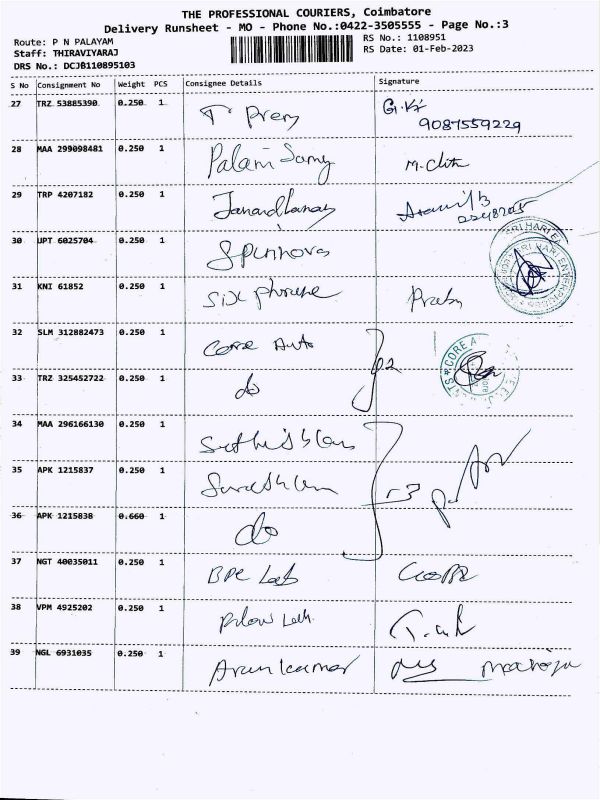 THE PROFESSIONAL COURIERS, Coimbatore
Delivery Runsheet - MO - Phone No.:0422-3505555 - Page No.:3
Route: P N PALAYAM
Staff: THIRAVIYARAJ
DRS No.: DCJB110895103
RS No.: 1108951
RS Date: 01-Feb-2023
S No Consignment No Weight PCS Consignee Details Signature
27 TRZ 53885390 0.250 1 T Prem
9087559229
28 MAA 299098481 0.250 1 Palani Samy
29 TRP 4207182 0.250 1 Janardhanan
30 UPT 6025704 0.250 1 Spinnova
SRI HARI ENTERPRISES
31 KNI 61852 0.250 1 Six phrase
32 SLM 312882473 0.250 1 Core Auto
CORE A
33 TRZ 325452722 0.250 1 do
34 MAA 296166130 0.250 1
35 APK 1215837 0.250 1
36 APK 1215838 0.660 1 do
37 NGT 40035011 0.250 1 BPC Lab
38 VPM 4925202 0.250 1
39 NGL 6931035 0.250 1 Arun kumar